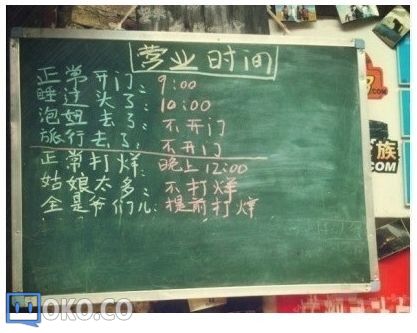 营业时间
正常开门：9:00
睡过头了：10:00
泡妞去了：不开门
旅行去了：不开门
正常打烊：晚上12:00
姑娘太多：不打烊
全是爷们儿：提前打烊
族
.COM
OKO.CO